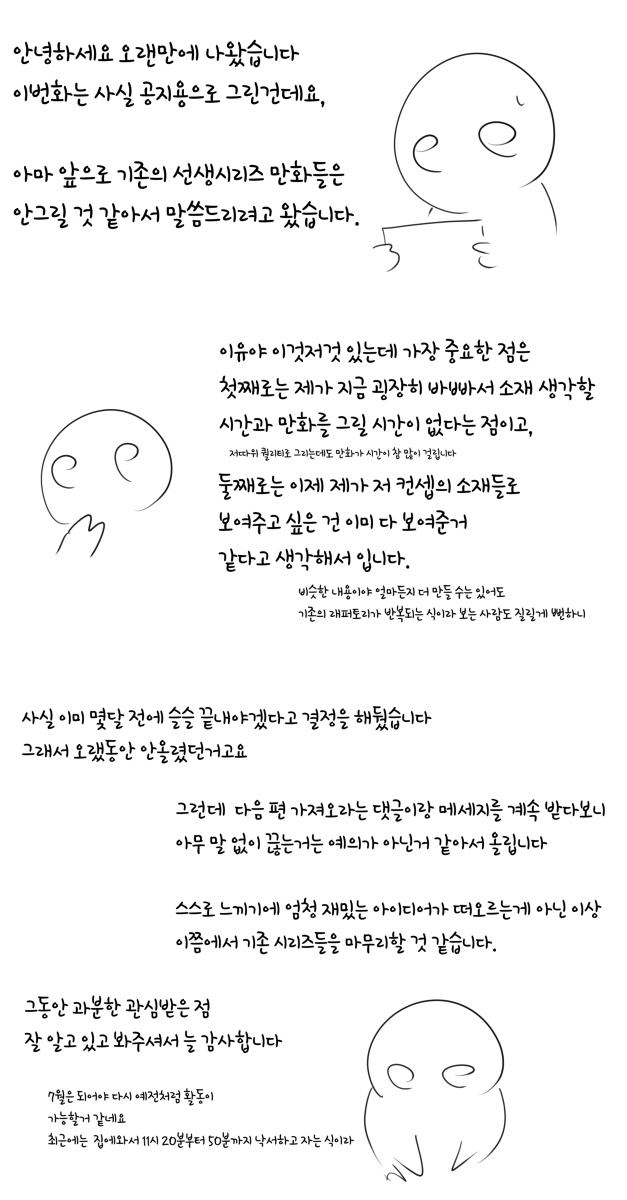 안녕하세요 오랜만에 나왔습니다
이번화는 사실 공지용으로 그린건데요,
아마 앞으로 기존의 선생시리즈 만화들은
안그릴 것 같아서 말씀드리려고 왔습니다.
이유야 이것저것 있는데 가장 중요한 점은
첫째로는 제가 지금 굉장히 바빠서 소재 생각할
시간과 만화를 그릴 시간이 없다는 점이고,
저따위 퀄리티로 그리는데도 만화가 시간이 참 많이 걸립니다
둘째로는 이제 제가 저 컨셉의 소재들로
보여주고 싶은 건 이미 다 보여준거
같다고 생각해서 입니다.
비슷한 내용이야 얼마든지 더 만들 수는 있어도
기존의 래퍼토리가 반복되는 식이라 보는 사람도 질릴게 뻔하니
사실 이미 몇달 전에 슬슬 끝내야겠다고 결정을 해뒀습니다
그래서 오랬동안 안올렸던거고요
그런데 다음 편 가져오라는 댓글이랑 메세지를 계속 받다보니
아무 말 없이 끊는거는 예의가 아닌거 같아서 올립니다
스스로 느끼기에 엄청 재밌는 아이디어가 떠오르는게 아닌 이상
이쯤에서 기존 시리즈들을 마무리할 것 같습니다.
그동안 과분한 관심받은 점
잘 알고 있고 봐주셔서 늘 감사합니다
7월은 되어야 다시 예전처럼 활동이
가능할거 같네요
최근에는 집에와서 11시 20분부터 50분까지 낙서하고 자는 식이라